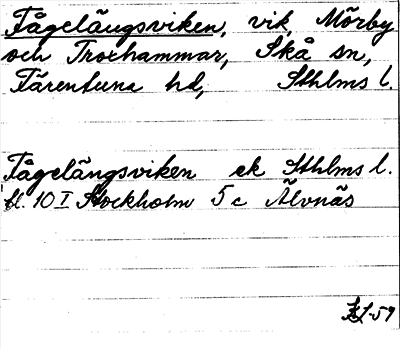 Fågelängsviken, vik, Mörby
och Troxhammar, Skå sn,
Färentuna hd, Sthlms l.
Fågelängsviken ek Sthlms l.
bl. 10 I Stockholm 5 c Älvnäs